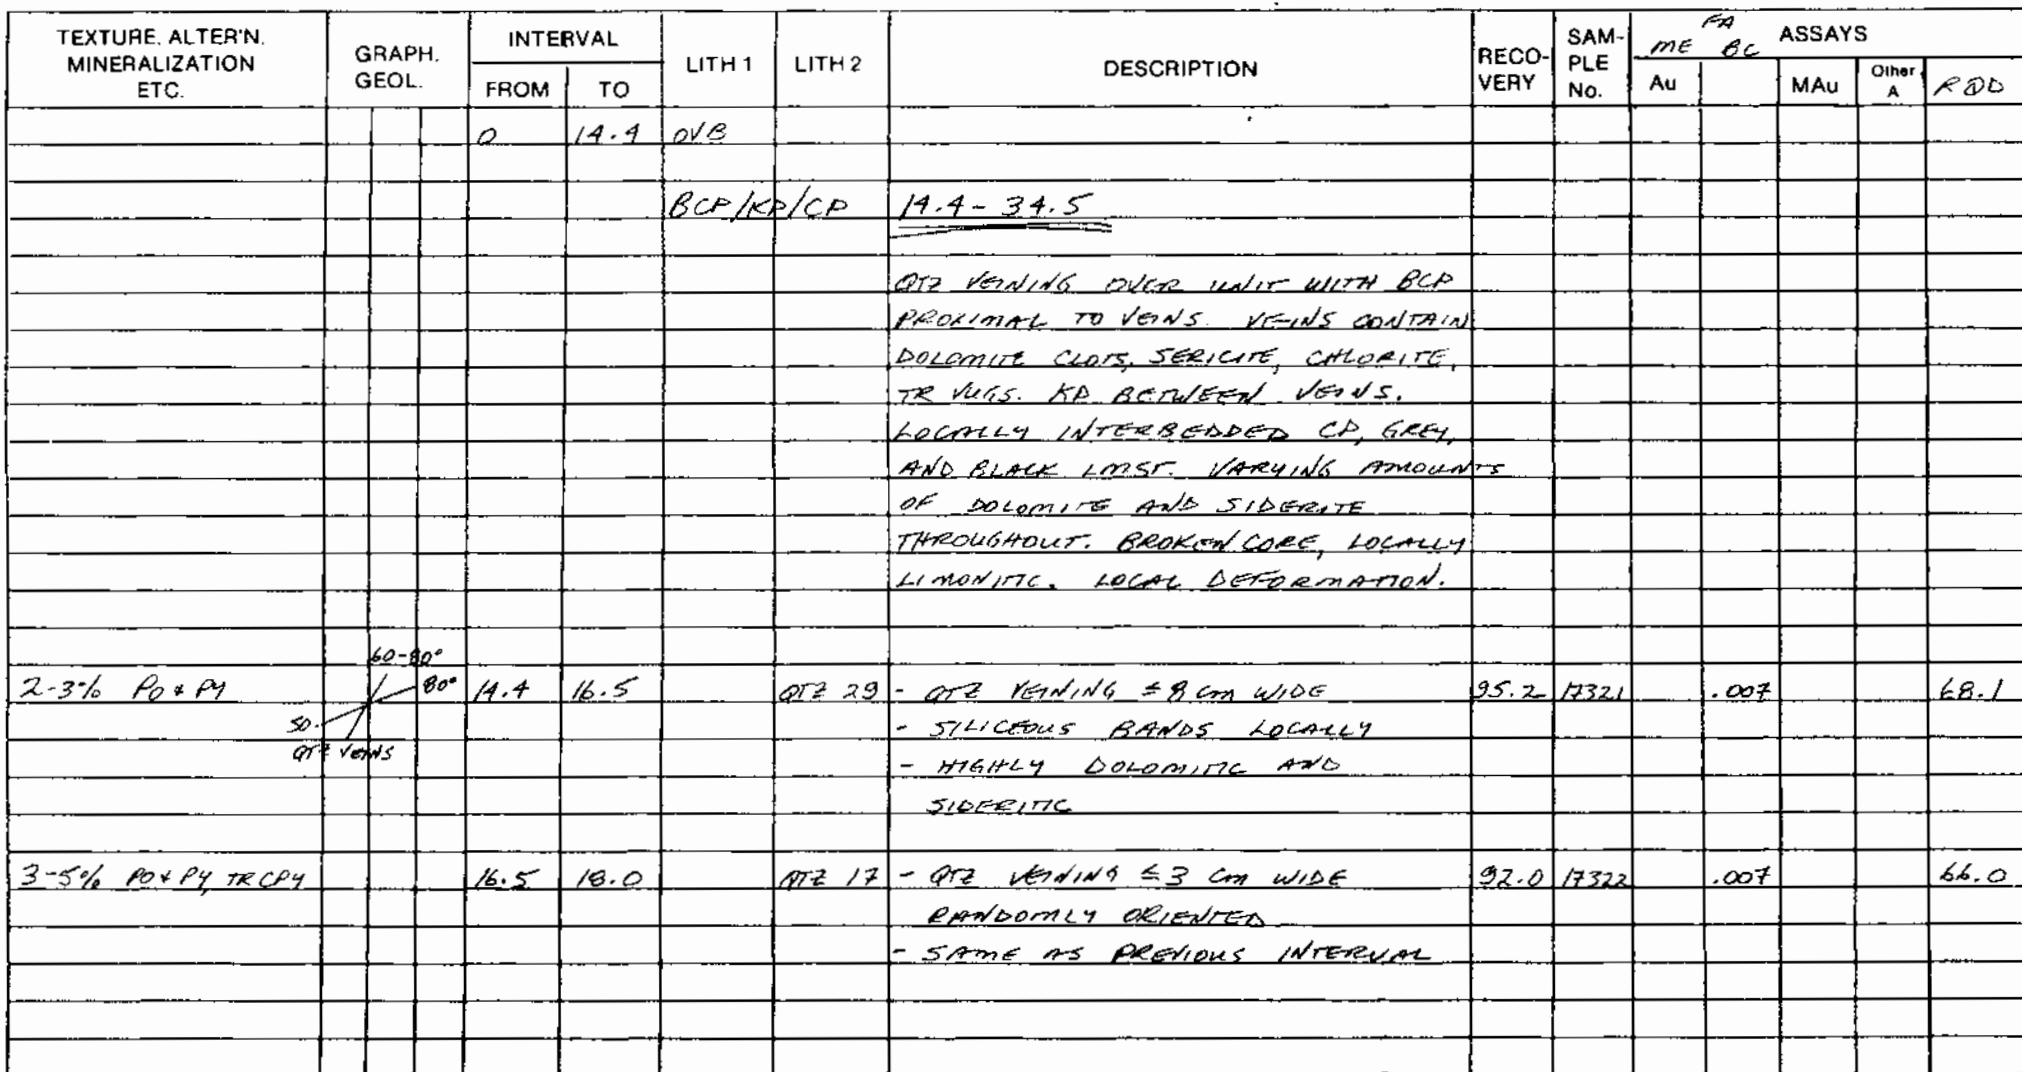 TEXTURE, ALTER'N. MINERALIZATION ETC. GRAPH. GEOL. INTERVAL FROM TO LITH 1 LITH 2 DESCRIPTION RECO-VERY SAM-PLE No. FA ME BC ASSAYS Au MAu Other A RQD
0 14.4 OVB
BCP/KP/CP 14.4 - 34.5
QTZ VEINING OVER UNIT WITH BCP
PROXIMAL TO VEINS. VEINS CONTAIN
DOLOMITE CLOTS, SERICITE, CHLORITE,
TR VUGS. KP BETWEEN VEINS.
LOCALLY INTERBEDDED CP, GREY,
AND BLACK LMST. VARYING AMOUNTS
OF DOLOMITE AND SIDERITE
THROUGHOUT. BROKEN CORE, LOCALLY
LIMONITIC. LOCAL DEFORMATION.
60-80°
2-3% PO & PY 80° 14.4 16.5 QTZ 29 - QTZ VEINING ≤ 8 cm WIDE 95.2 17321 .007 68.1
50 - SILICEOUS BANDS LOCALLY
QTZ VEINS - HIGHLY DOLOMITIC AND
SIDERITIC
3-5% PO & PY TR CPY 16.5 18.0 QTZ 17 - QTZ VEINING ≤ 3 cm WIDE 92.0 17322 .007 66.0
RANDOMLY ORIENTED
- SAME AS PREVIOUS INTERVAL